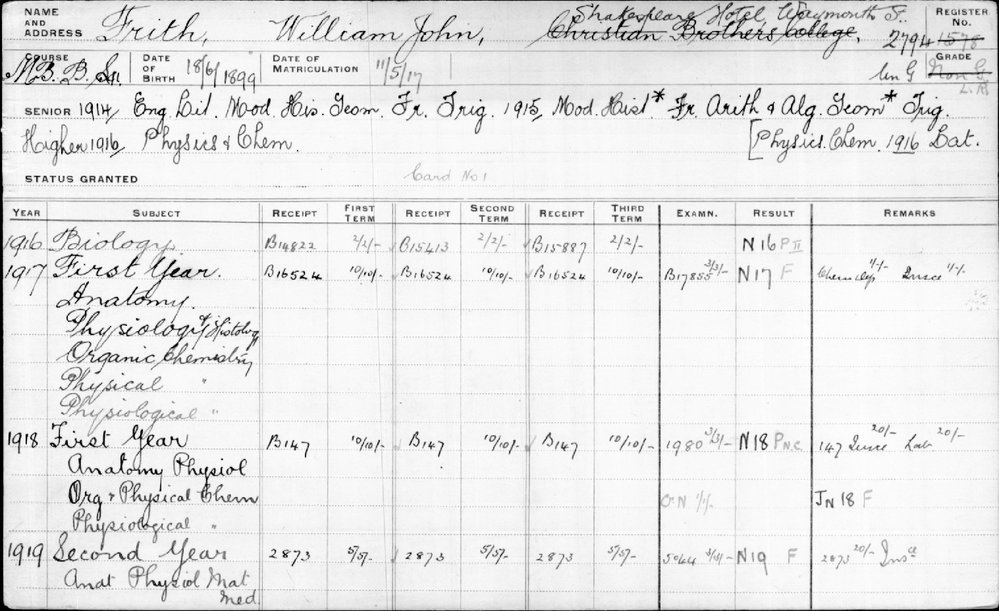 NAME AND ADDRESS Frith, William John, Shakespeare Hotel, Waymouth St. Christian Brothers College, REGISTER No. 2794 1578
COURSE M.B. B.S. DATE OF BIRTH 18/6/1899 DATE OF MATRICULATION 11/5/17 GRADE Un G Non G L.R.
SENIOR 1914 Eng Lit. Mod. His. Geom. Fr. Trig. 1915 Mod. Hist* Fr. Arith & Alg. Geom* Trig.
Higher 1916 Physics & Chem. [Physics. Chem. 1916 Lat.
STATUS GRANTED Card No 1
YEAR SUBJECT RECEIPT FIRST TERM RECEIPT SECOND TERM RECEIPT THIRD TERM EXAMN. RESULT REMARKS
1916 Biology B14822 2/2/- B15413 2/2/- B15887 2/2/- N16 P II
1917 First Year. B16524 10/10/- B16524 10/10/- B16524 10/10/- B17855 3/3/- N17 F 1/-/- 1/-/-
Anatomy.
Physiology & Histology
Organic Chemistry
Physical "
Physiological "
1918 First Year B147 10/10/- B147 10/10/- B147 10/10/- 1980 3/3/- N18 P N.C. 147 20/- Lab 20/-
Anatomy Physiol
Org & Physical Chem O.N 1/1/- JN 18 F
Physiological "
1919 Second Year 2873 5/5/- 2873 5/5/- 2873 5/5/- 5064 3/3/- N19 F 2873 20/-
Anat Physiol Mat
Med.